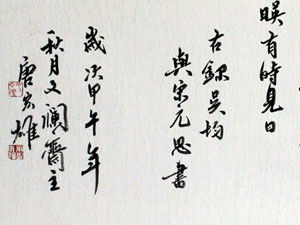 暎有時見日
古録吴均
與宋元思書
歲次甲午年
秋月又瀾齋主
唐宏雄